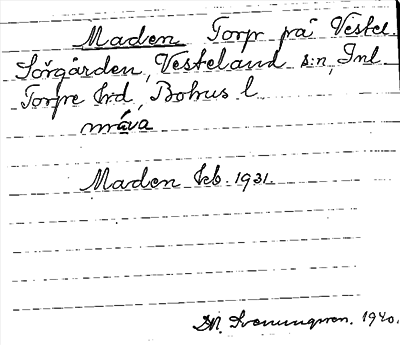 Maden Torp på Vestel.
Sörgården, Vesteland s:n, Inl.
Torpe hd, Bohus l.
måva
Maden kb. 1931.
1940.